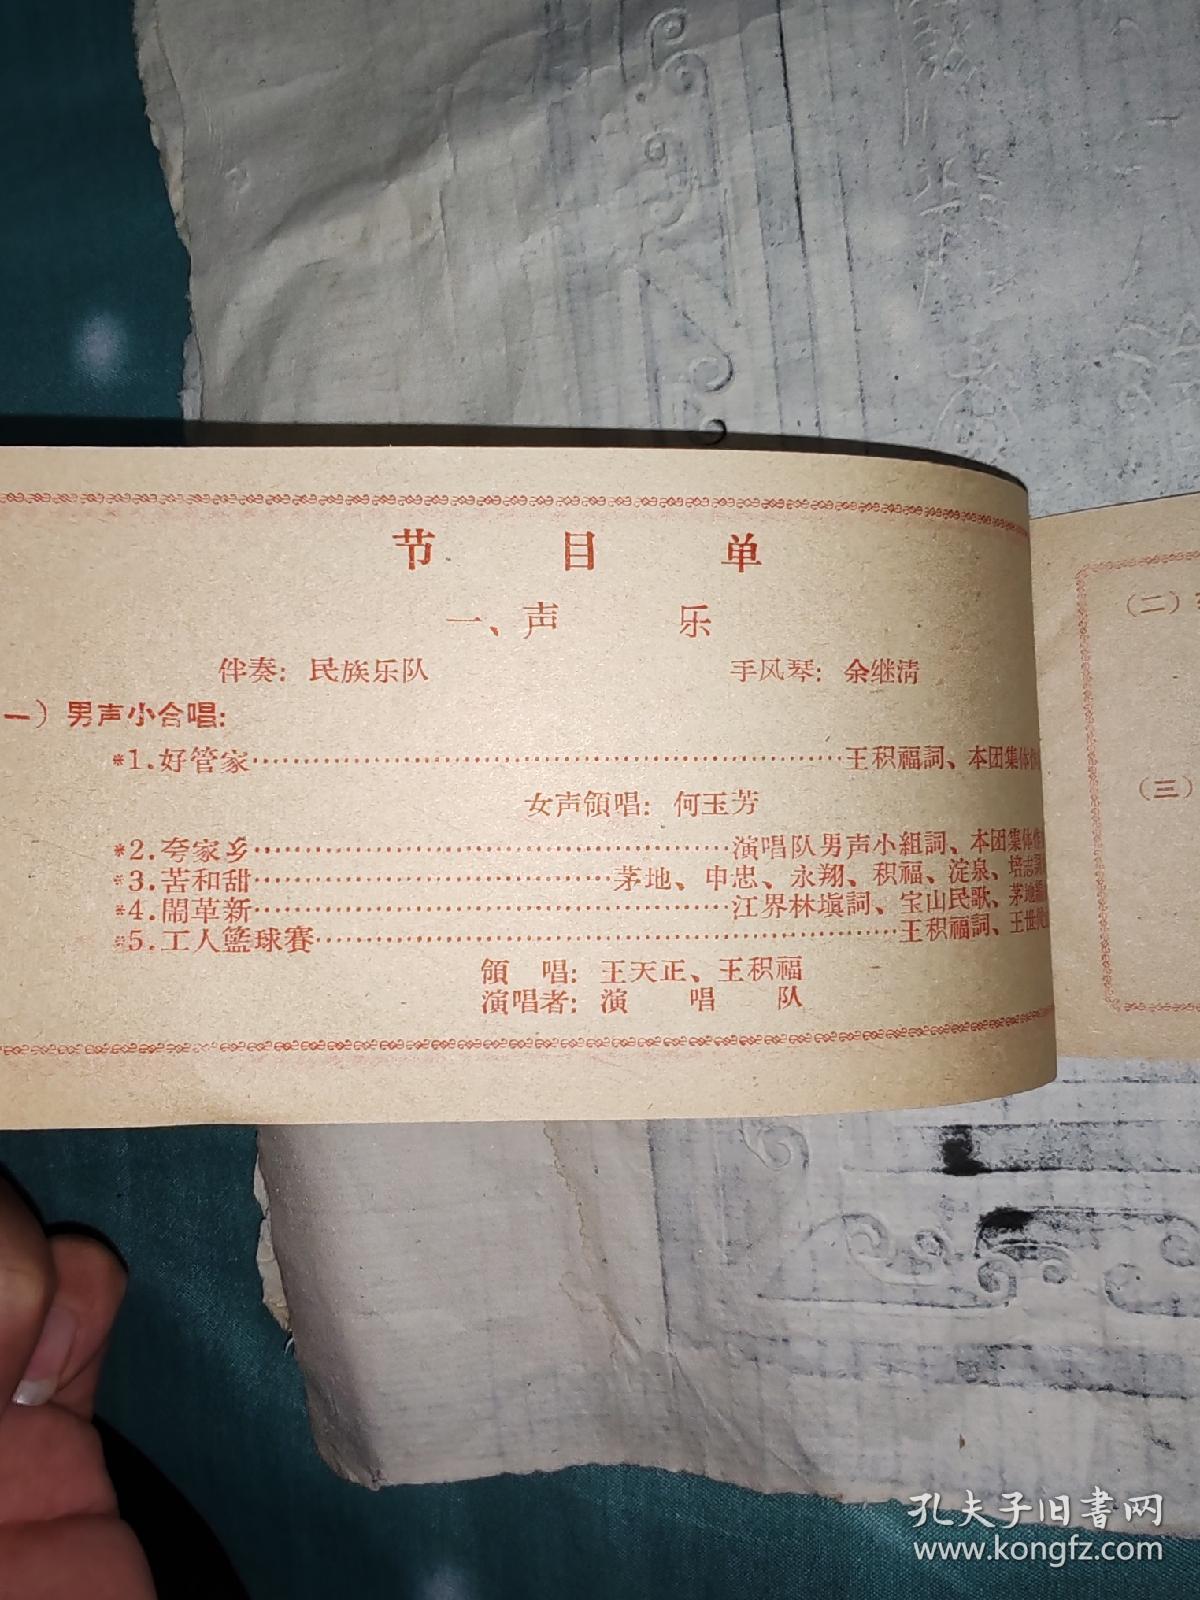 节目单
一、声乐
伴奏：民族乐队 手风琴：余继清
一）男声小合唱：
*1.好管家……王积福詞、本团集体
女声領唱：何玉芳
*2.夸家乡……演唱队男声小組詞、本团集体
*3.苦和甜……茅地、申忠、永翔、积福、淀泉、培志
*4.鬧革新……江界林塡詞、宝山民歌、茅地
*5.工人籃球賽……王积福詞、王世
領唱：王天正、王积福
演唱者：演唱队
（二）
（三）
孔夫子旧书网
www.kongfz.com